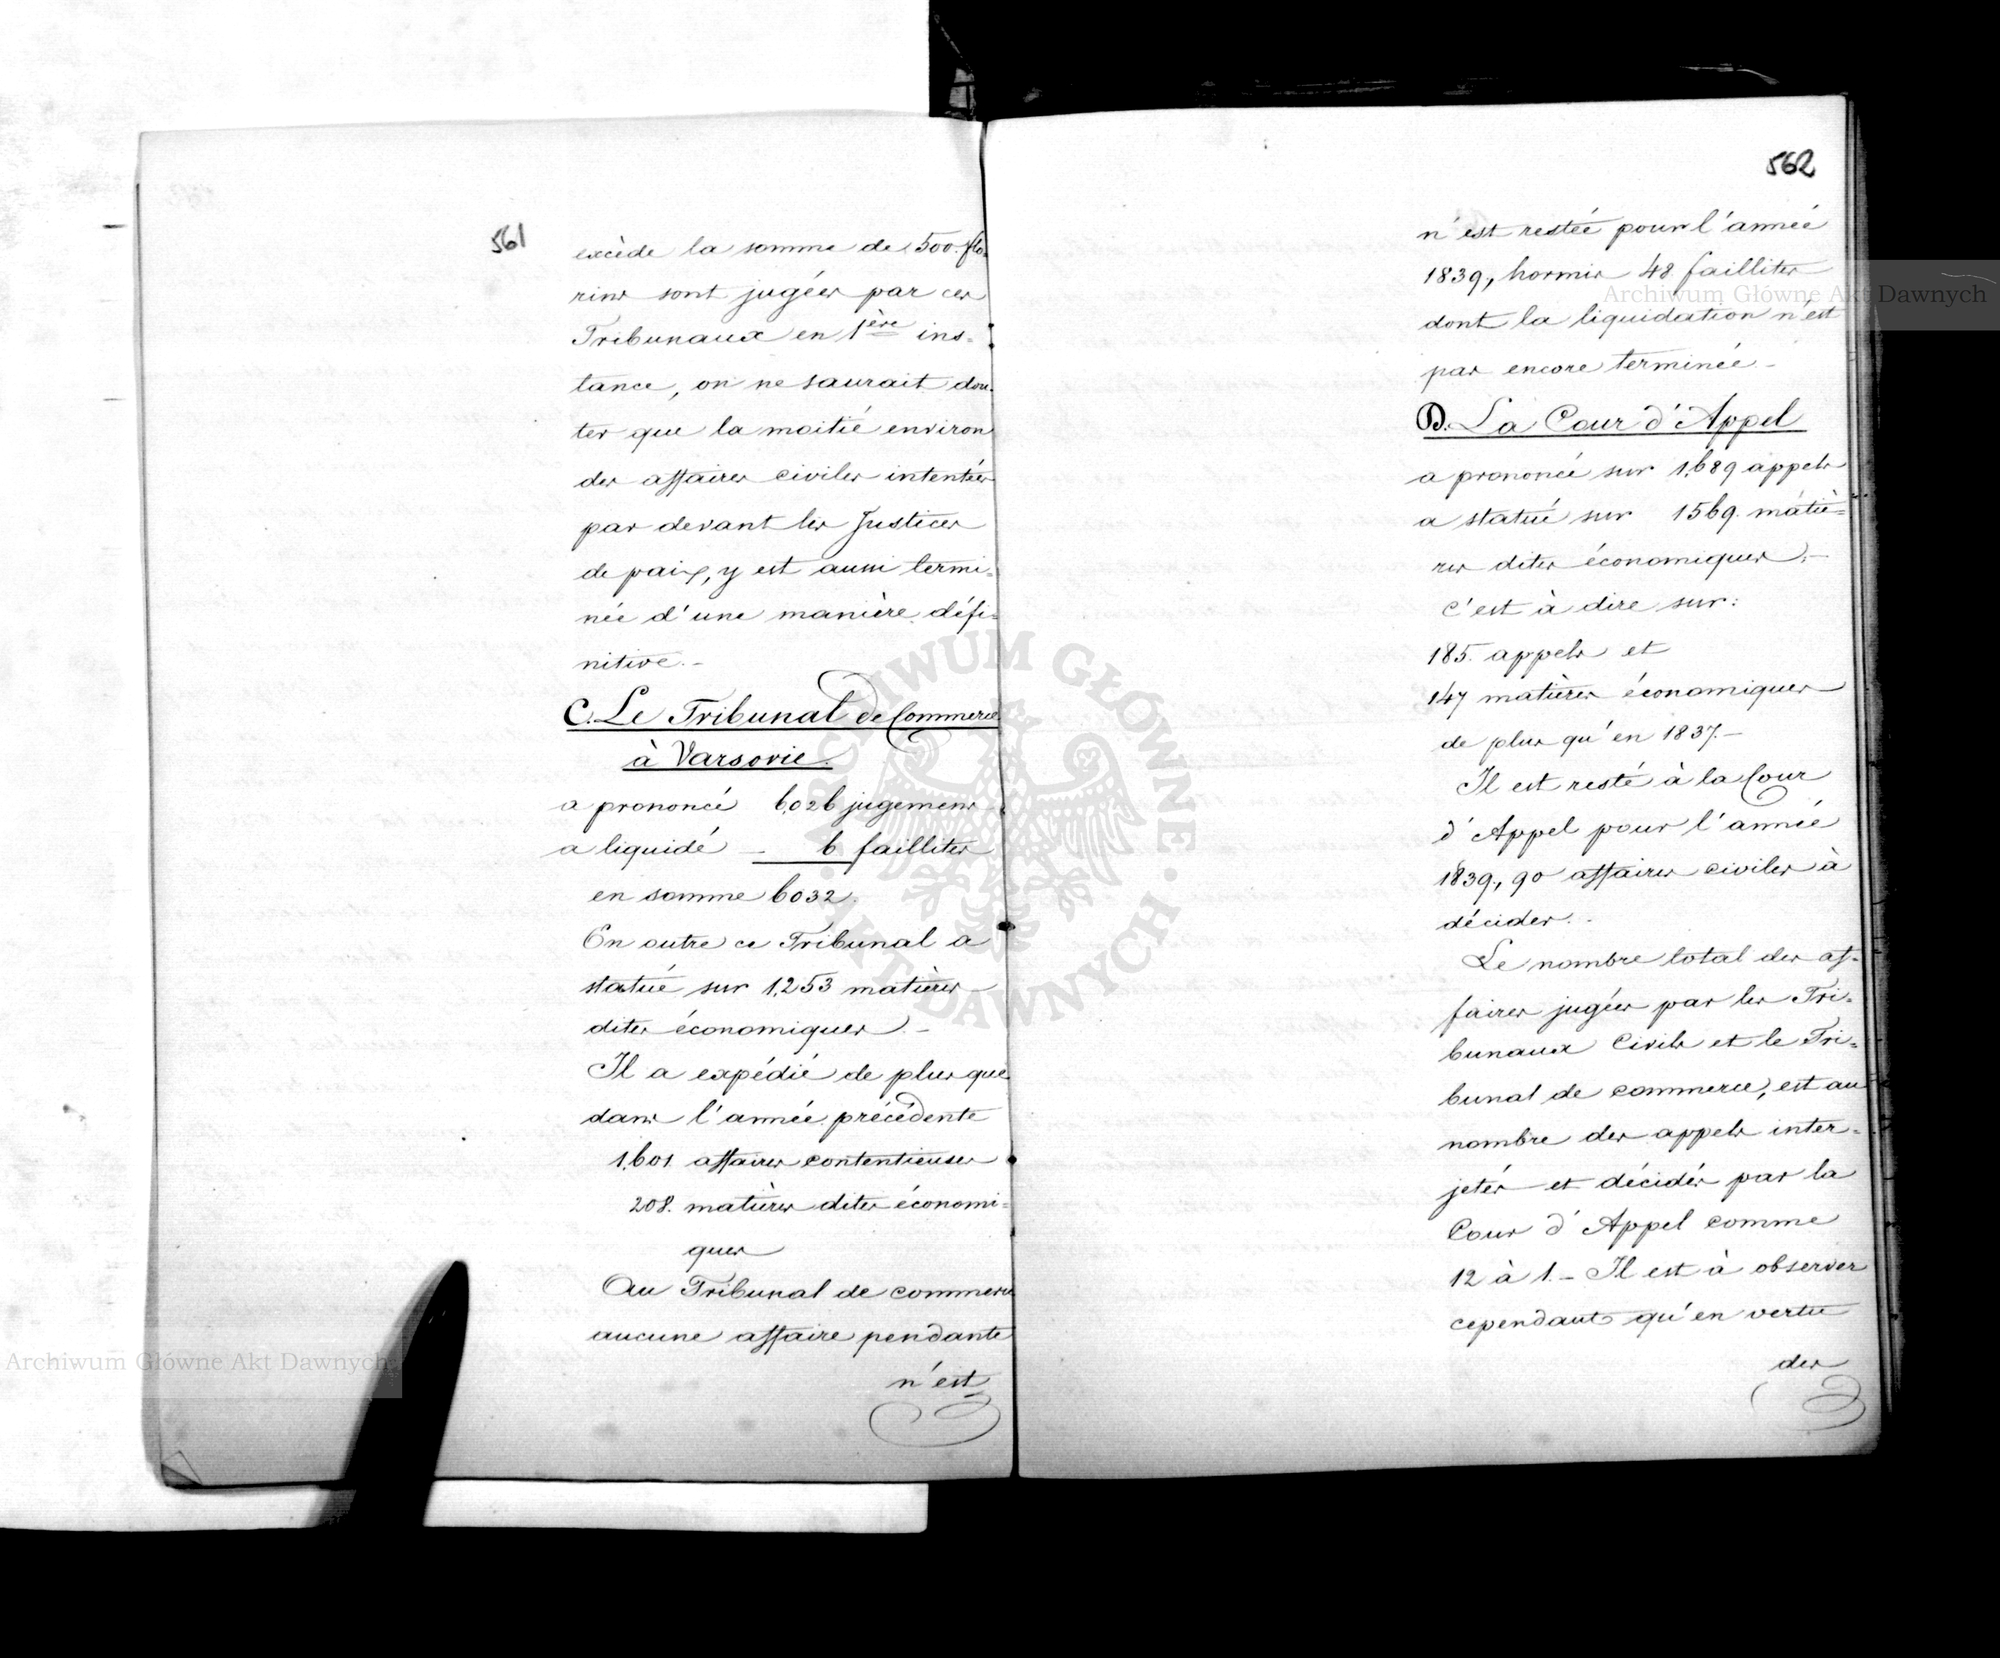 561
excède la somme de 500. flo-
rins sont jugées par ces
Tribunaux en 1ère ins-
tance, on ne saurait dou-
ter que la moitié environ
des affaires civiles intentées
par devant les Justices
de paix, y est aussi termi-
née d'une manière défi-
nitive.-
C. Le Tribunal de Commerce
à Varsovie.
a prononcé 6,026 jugemens
a liquidé - 6 faillites
en somme 6032.
En outre ce Tribunal a
statué sur 1,253 matières
dites économiques.-
Il a expédié de plus que
dans l'année précédente
1,601. affaires contentieuses
208. matières dites économi-
ques
Au Tribunal de commerce
aucune affaire pendante
n'est
562
n'est restée pour l'année
1839, hormis 48 faillites
dont la liquidation n'est
pas encore terminée-
D. La Cour d'Appel
a prononcé sur 1,689 appels
a statué sur 1569. matiè-
res dites économiques.-
c'est à dire sur:
185. appels et
147 matières économiques
de plus qu'en 1837.-
Il est resté à la Cour
d'Appel pour l'année
1839., 90 affaires civiles à
décider.-
Le nombre total des af-
faires jugées par les Tri-
bunaux Civils et le Tri-
bunal de commerce, est au
nombre des appels inter-
jetés et décidés par la
Cour d'Appel comme
12 à 1.- Il est à observer
cependant qu'en vertu
des
Archiwum Główne Akt Dawnych
Archiwum Główne Akt Dawnych
ARCHIWUM GŁÓWNE AKT DAWNYCH